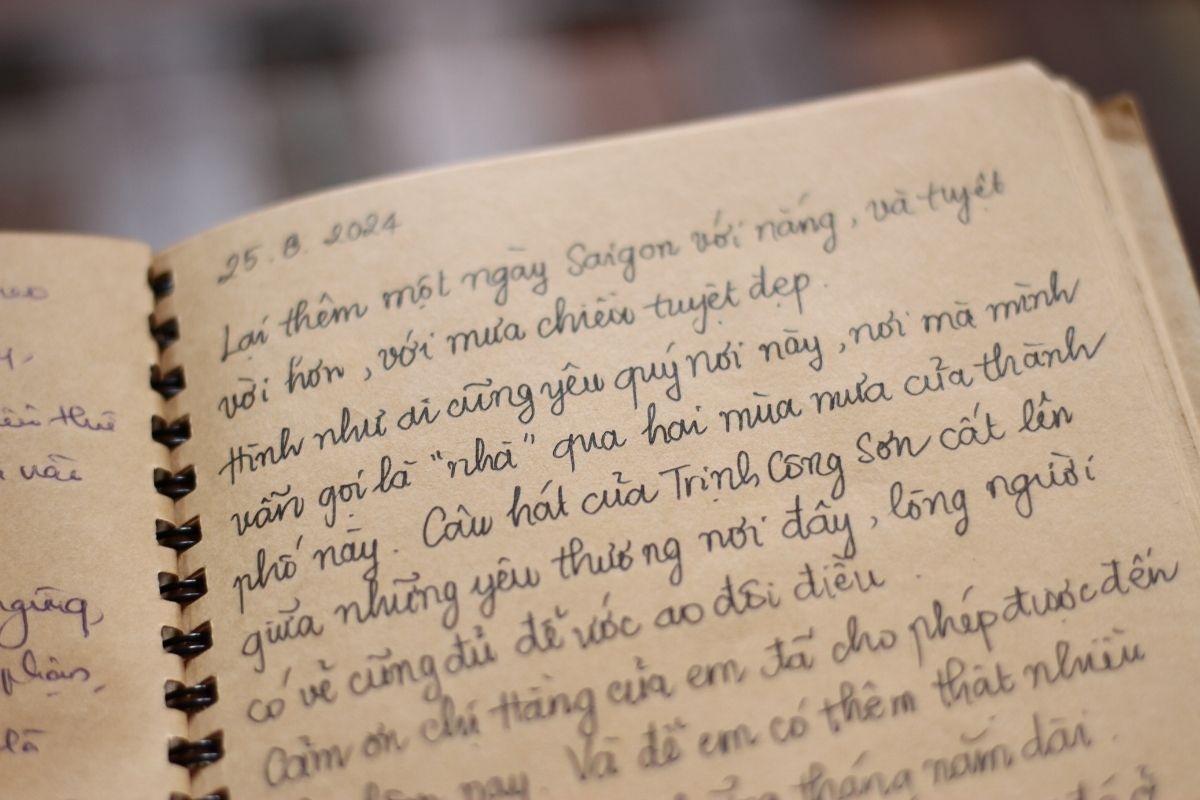 eo
4.
iều thế
a vài
ngừng,
phận,
là
25.8.2024
Lại thêm một ngày Saigon với nắng, và tuyệt
vời hơn, với mưa chiều tuyệt đẹp.
Hình như ai cũng yêu quý nơi này, nơi mà mình
vẫn gọi là "nhà" qua hai mùa mưa của thành
phố này. Câu hát của Trịnh Công Sơn cất lên
giữa những yêu thương nơi đây, lòng người
có vẻ cũng đủ để ước ao đôi điều.
Cảm ơn chị Hằng của em đã cho phép được đến
nay. Và để em có thêm thật nhiều
tháng năm dài.